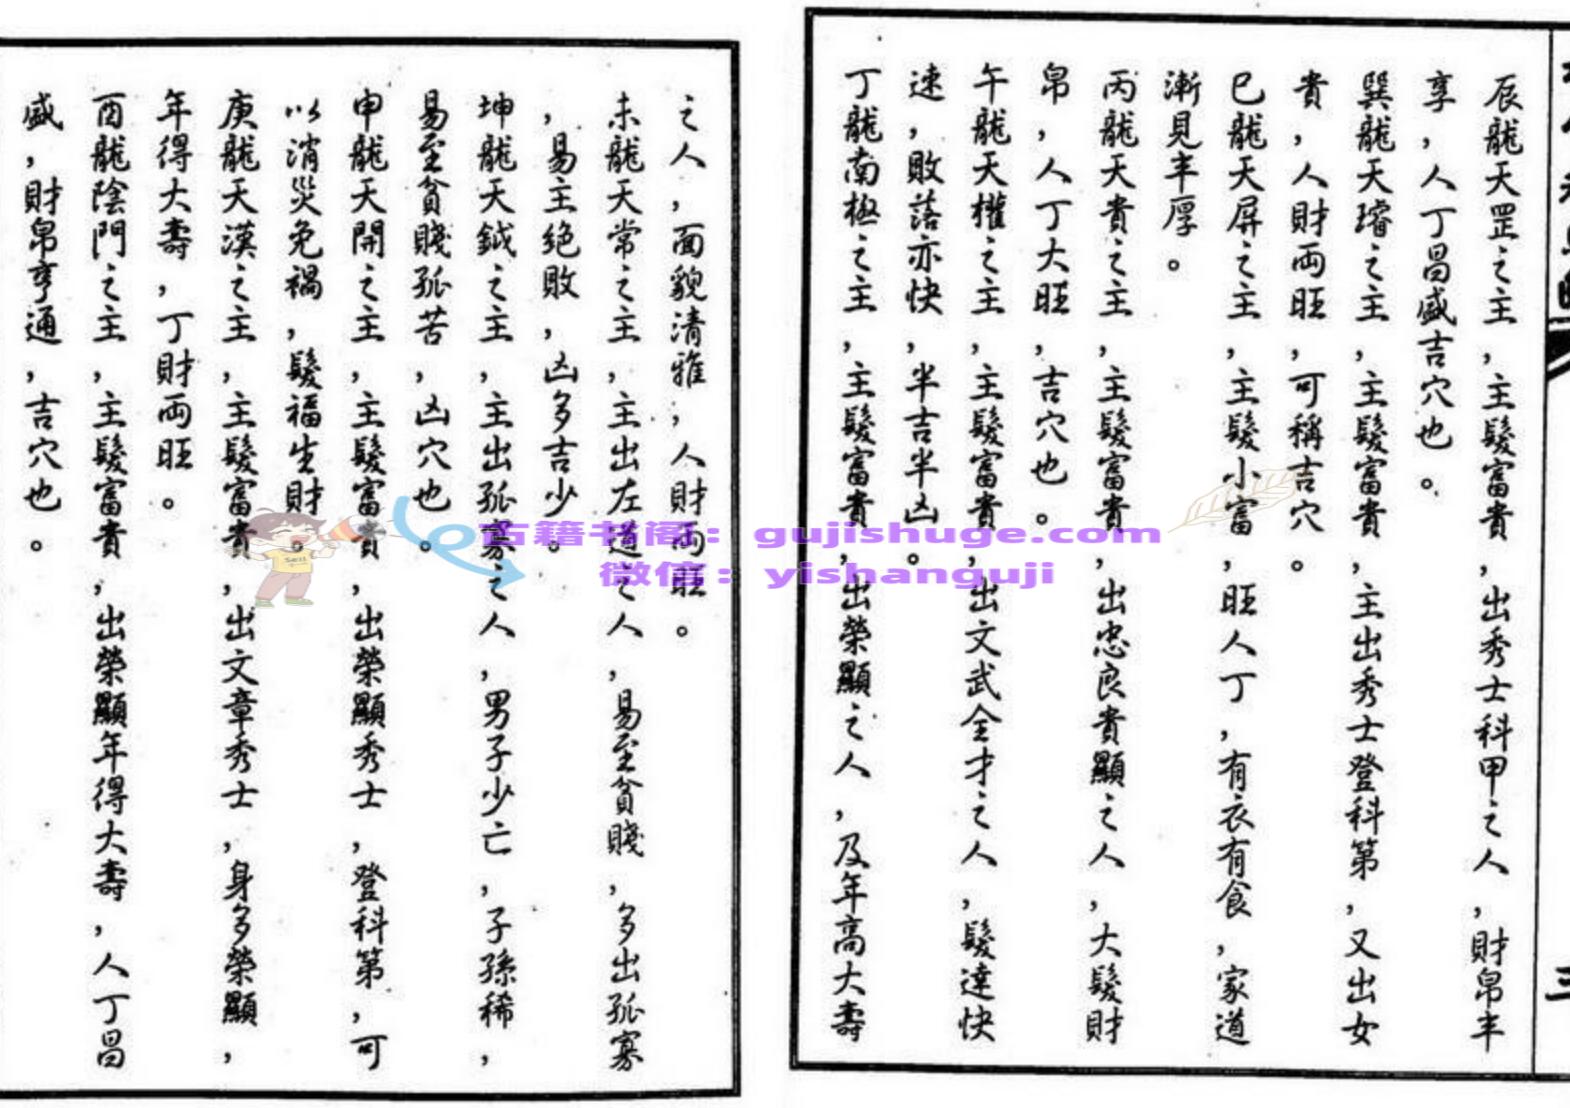 辰龍天罡之主,主髮富貴,出秀士科甲之人,財帛丰
享,人丁昌盛吉穴也。
巽龍天璿之主,主髮富貴,主出秀士登科第,又出女
貴,人財両旺,可稱吉穴。
巳龍天屏之主,主髮小富,旺人丁,有衣有食,家道
漸見丰厚。
丙龍天貴之主,主髮富貴,出忠良貴顯之人,大髮財
帛,人丁大旺,吉穴也。
午龍天權之主,主髮富貴,出文武全才之人,髮達快
速,敗落亦快,半吉半凶。
丁龍南極之主,主髮富貴,出榮顯之人,及年高大壽
之人,面貌清雅,人財両旺。
未龍天常之主,主出左道之人,易至貧賤,多出孤寡
,易主絕敗,凶多吉少。
坤龍天鉞之主,主出孤寡之人,男子少亡,子孫稀,
易至貧賤孤苦,凶穴也。
申龍天開之主,主髮富貴,出榮顯秀士,登科第,可
以消災免禍,髮福生財。
庚龍天漢之主,主髮富貴,出文章秀士,身多榮顯,
年得大壽,丁財両旺。
酉龍陰門之主,主髮富貴,出榮顯年得大壽,人丁昌
盛,財帛亨通,吉穴也。
三
古籍书阁:gujishuge.com
微信:yishanguji